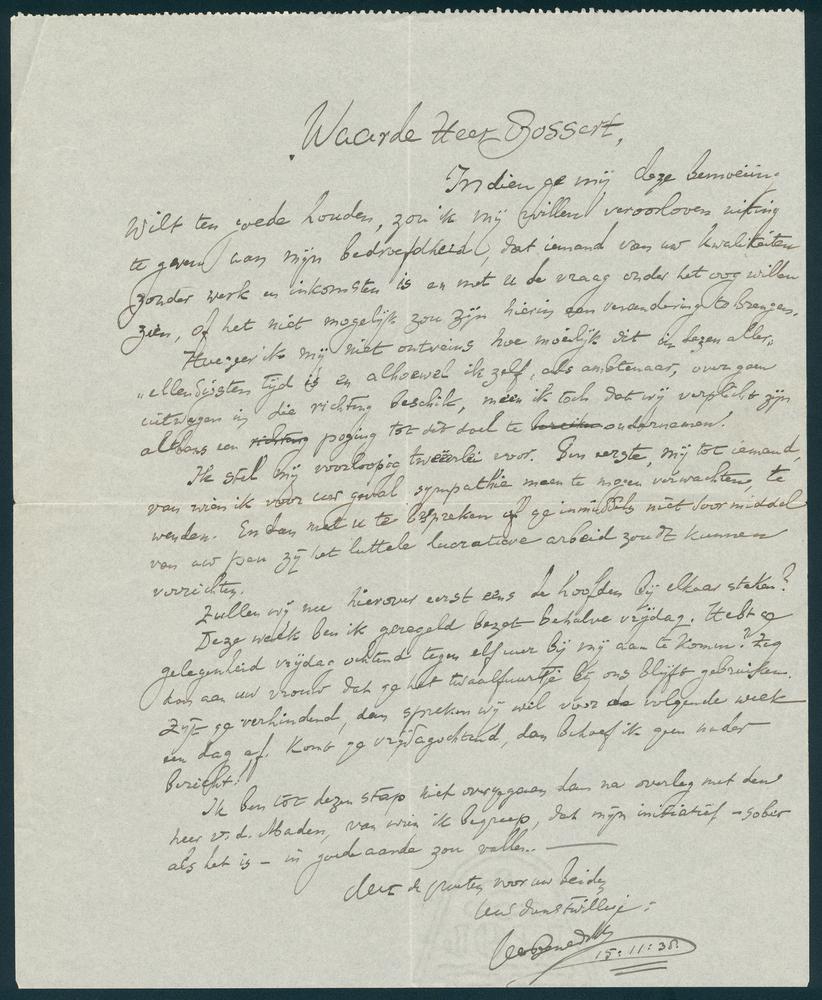 Waarde Heer Bossert,
Indien ge mij deze bemoeiing
wilt ten goede houden, zou ik mij willen veroorloven uiting
te geven aan mijn bedroefdheid, dat iemand van uw kwaliteiten
zonder werk en inkomsten is en met u de vraag onder het oog willen
zien, of het niet mogelijk zou zijn hierin een verandering te brengen.
Hoezeer ik mij niet ontveins hoe moeilijk dit in dezen aller-
"ellendigsten tijd is en alhoewel ik zelf, als ambtenaar, over geen
uitwegen in die richting beschik, meen ik toch dat wij verplicht zijn
althans een richting poging tot dit doel te ondernemen!
Ik stel mij voorloopig tweeërlei voor. Ten eerste, mij tot iemand,
van wien ik voor uw geval sympathie meen te mogen verwachten, te
wenden. En dan met u te bespreken of ge inmiddels niet door middel
van uw pen zij het luttele lucratieve arbeid zoudt kunnen
verrichten.
Zullen wij nu hierover eerst eens de hoofden bij elkaar steken?
Deze week ben ik geregeld bezet behalve vrijdag. Hebt ge
gelegenheid vrijdag ochtend tegen elf uur bij mij aan te komen? Zeg
dan aan uw vrouw dat ge het twaalfuurtje bij ons blijft gebruiken.
Zijt ge verhinderd, dan spreken wij wel voor de volgende week
een dag af. Komt ge vrijdagochtend, dan behoef ik geen nader
bericht!
Ik ben tot dezen stap niet overgegaan dan na overleg met den
heer v.d. Maden, van wien ik begreep, dat mijn initiatief – sober
als het is – in goede aarde zou vallen. —
Met de groeten voor uw beiden
Uw dienstwillige:
15:11:35.